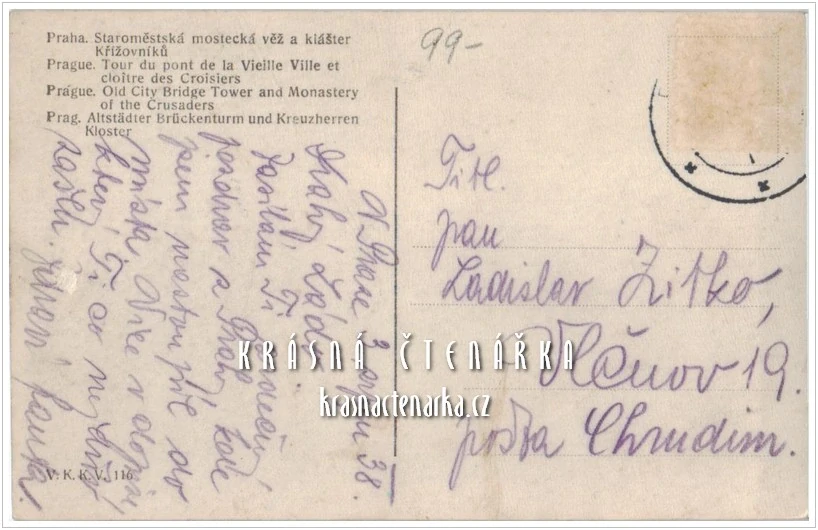 Praha. Staroměstská mostecká věž a klášter
Křižovníků
Prague. Tour du pont de la Vieille Ville et
cloître des Croisiers
Prague. Old City Bridge Tower and Monastery
of the Crusaders
Prag. Altstädter Brückenturm und Kreuzherren
Kloster
99-
V Praze 3. srpna 38.
Drahý Láďo!
Zasílám Ti srdečný
pozdrav z Prahy, kde
jsem nastoupil do
místa. Více v dopise,
který Ti co nejdřív
zašlu.
Titl.
pan
Ladislav Zitko,
Vlčnov 19.
pošta Chrudim.
KRÁSNÁ ČTENÁŘKA
krasnactenarka.cz
V. K. K. V. 116